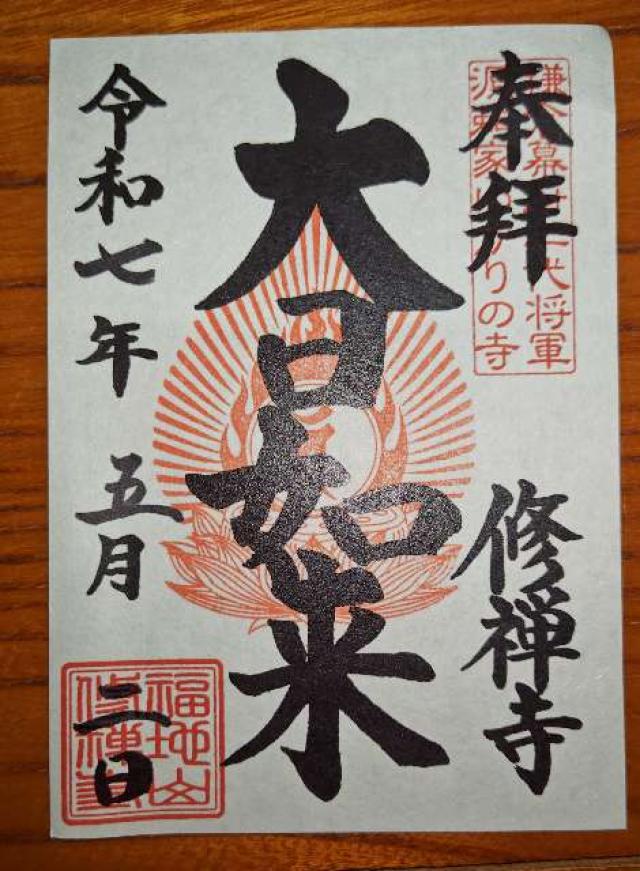 奉拝
鎌倉幕府二代将軍
源頼家ゆかりの寺
修禅寺
大日如来
令和七年 五月 二日
福地山
修禅寺